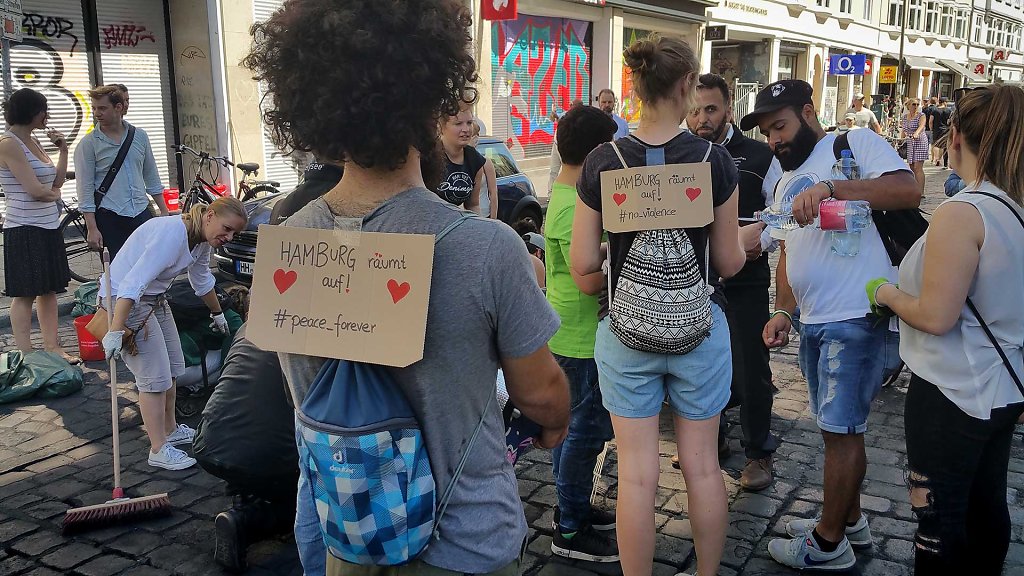 HAMBURG räumt
auf!
#peace_forever
HAMBURG räumt
auf!
#no-violence
deuter
O2